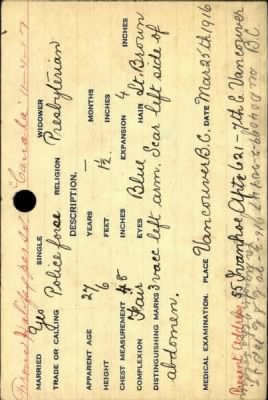 Canada 11-4-17
MARRIED Yes SINGLE WIDOWER
TRADE OR CALLING Police force RELIGION Presbyterian
DESCRIPTION.
APPARENT AGE 27 YEARS — MONTHS
HEIGHT 6 FEET 1½ INCHES
CHEST MEASUREMENT 48 INCHES EXPANSION 4 INCHES
COMPLEXION Fair EYES Blue HAIR Lt. Brown
DISTINGUISHING MARKS 3 vacc left arm. Scar left side of
abdomen.
MEDICAL EXAMINATION. PLACE Vancouver B.C. DATE Mar 25th, 1916
Present Address, 55 Ivanhoe Apts 621-7th E Vancouver
B C